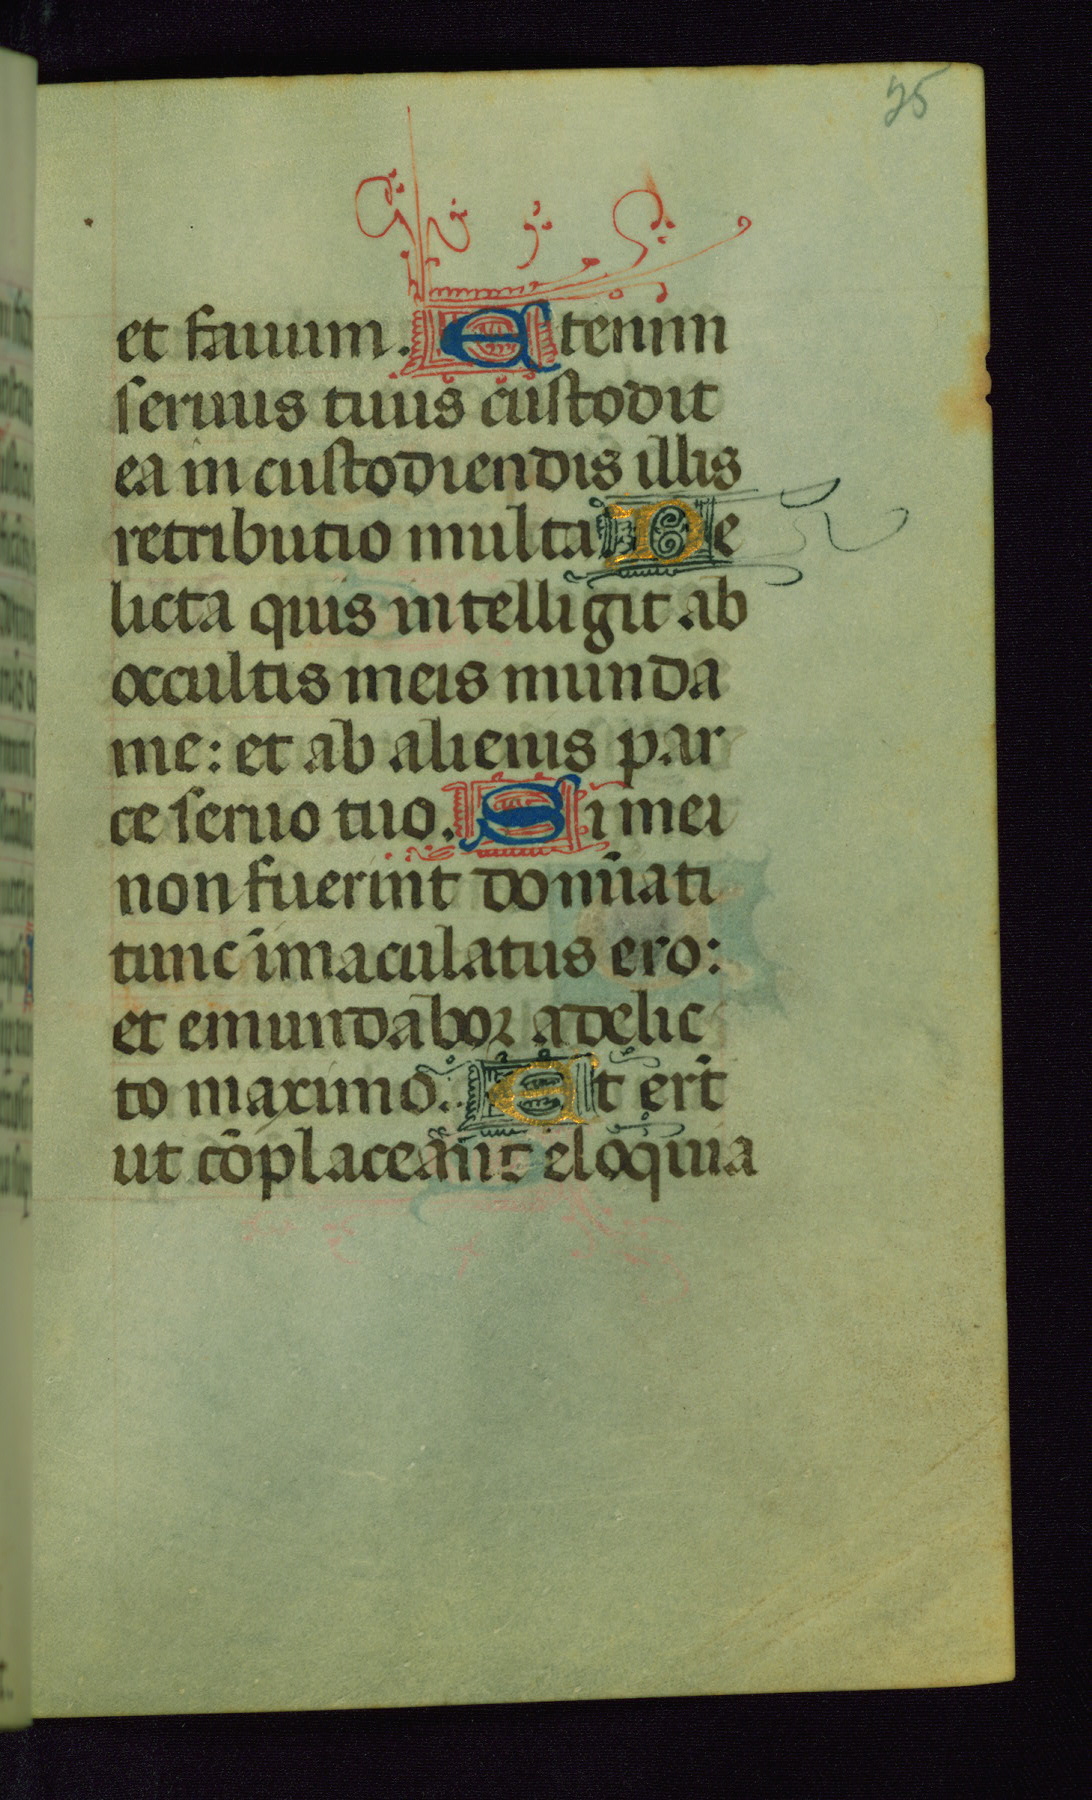 25
et fauum. Etenim
seruus tuus custodit
ea in custodiendis illis
retributio multa De
licta quis intelligit ab
occultis meis munda
me: et ab alienis par
ce seruo tuo. Si mei
non fuerint domīati
tunc īmaculatus ero:
et emundabor a delic
to maximo. Et erūt
ut cōplaceant eloquia